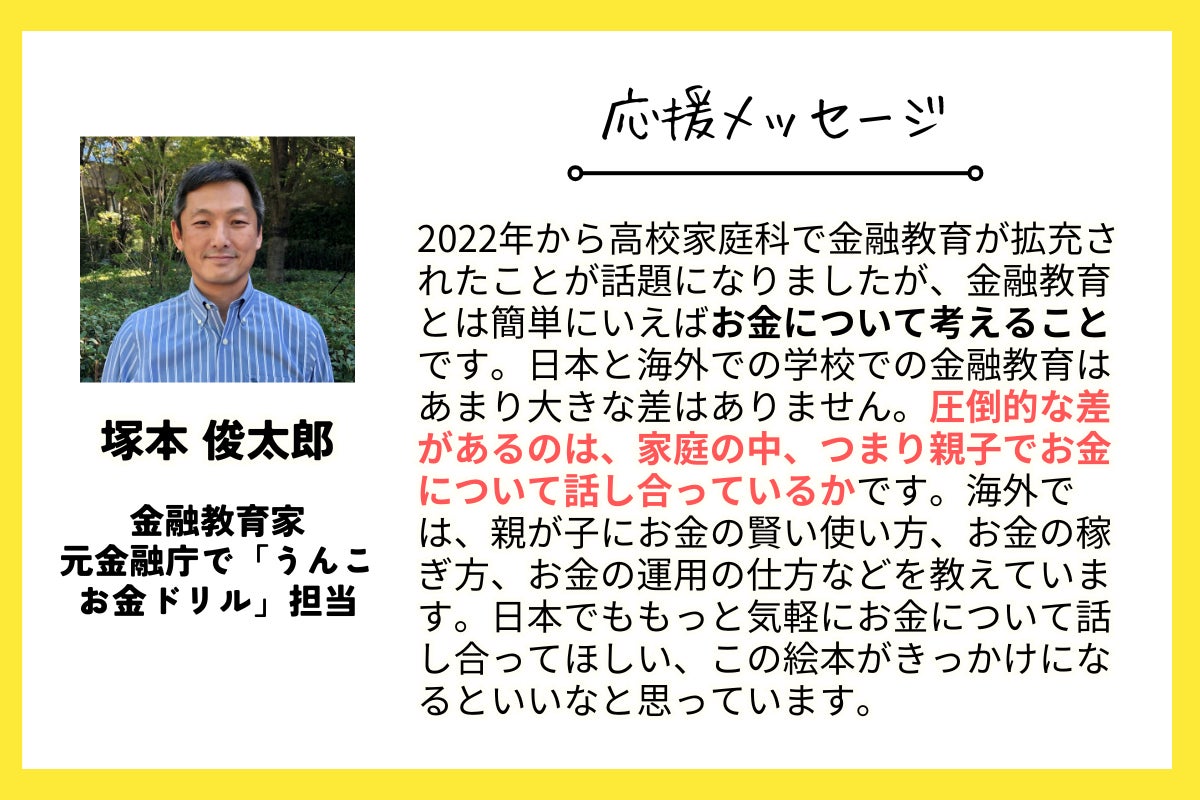 応援メッセージ
塚本 俊太郎
金融教育家
元金融庁で「うんこ
お金ドリル」担当
2022年から高校家庭科で金融教育が拡充さ
れたことが話題になりましたが、金融教育
とは簡単にいえばお金について考えること
です。日本と海外での学校での金融教育は
あまり大きな差はありません。圧倒的な差
があるのは、家庭の中、つまり親子でお金
について話し合っているかです。海外で
は、親が子にお金の賢い使い方、お金の稼
ぎ方、お金の運用の仕方などを教えていま
す。日本でももっと気軽にお金について話
し合ってほしい、この絵本がきっかけにな
るといいなと思っています。